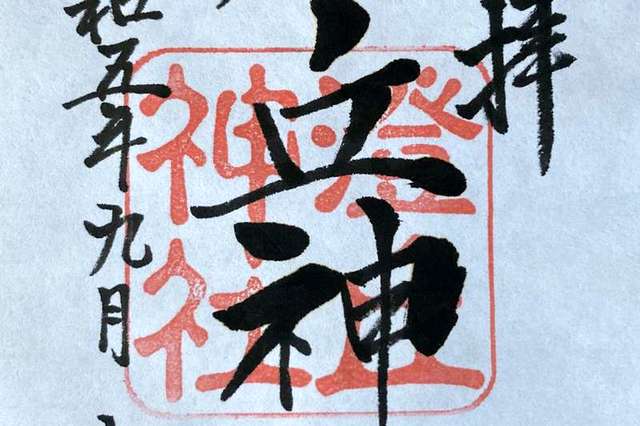 拝
立神
和五年九月
燈立
神社